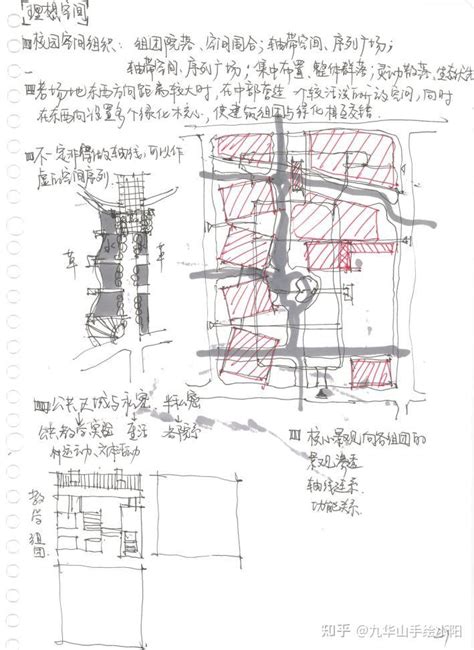 [理想空间]
校园空间组织: 组团院落、空间围合; 轴带空间、序列广场;
轴带空间、序列广场; 集中布置、整体群落; 灵动散落、生态
当场地东西方向距离较大时, 在中部营造一个较活泼的开放空间, 同时
在东西向设置多个绿化核心, 使建筑组团与绿化相互交错.
不一定非得做轴线, 可以作
虚的空间序列.
草
水
草
公共区域与私密 半私密
公共教学实验 生活 各院系
运动、文体活动
核心景观向各组团的
景观渗透
轴线连系
功能关系
教学组团
知乎 @九华山手绘小阳